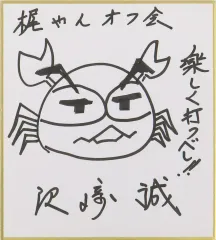 梶やんオフ会
楽しく打つべし!!
沢崎誠